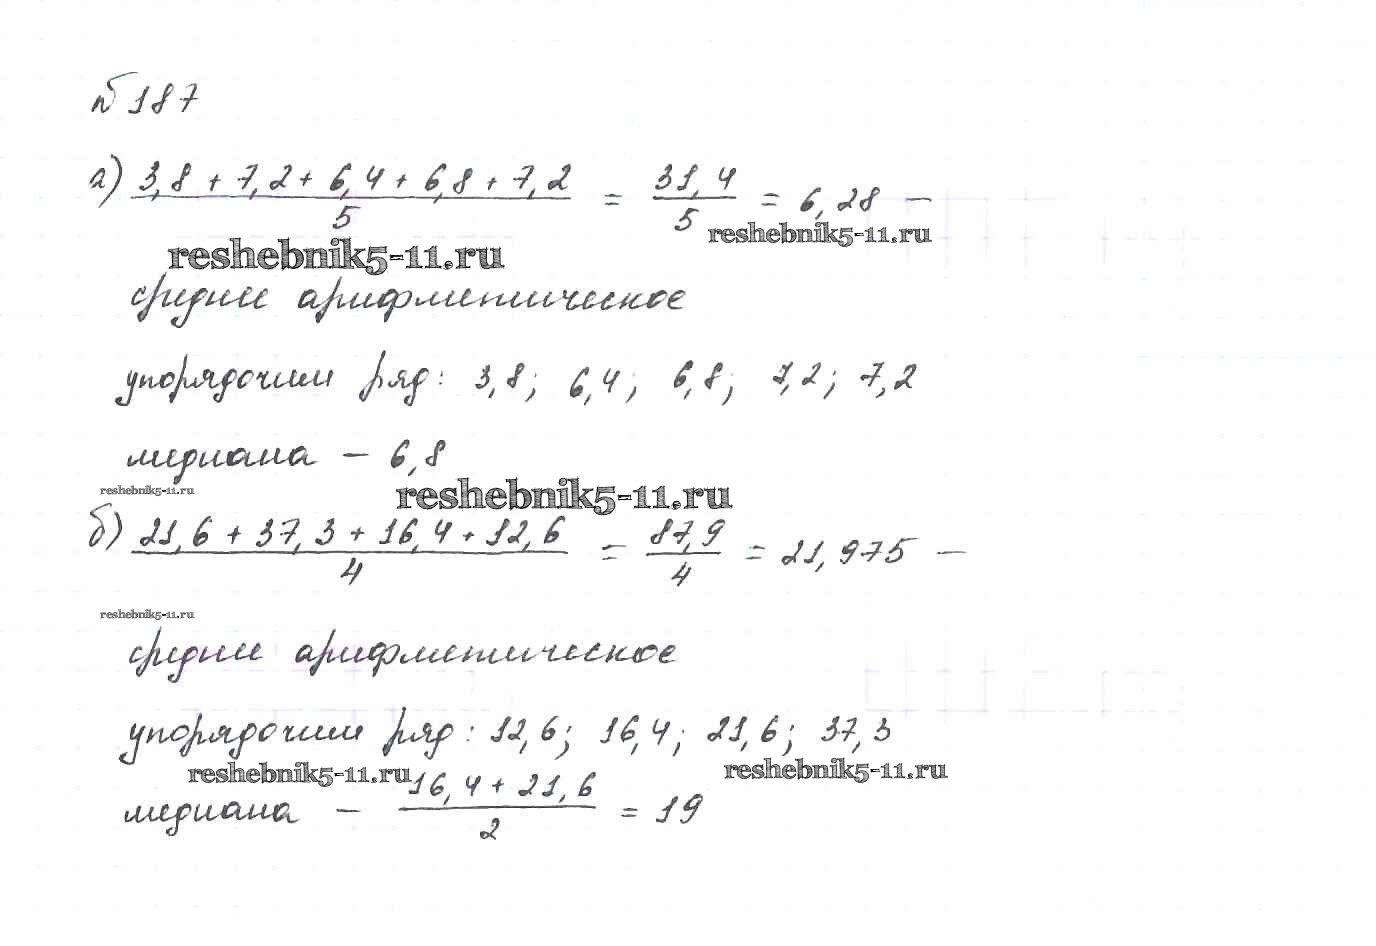 №187
а) 3,8 + 7,2 + 6,4 + 6,8 + 7,2 / 5 = 31,4 / 5 = 6,28 —
reshebnik5-11.ru
reshebnik5-11.ru
среднее арифметическое
упорядочим ряд: 3,8; 6,4; 6,8; 7,2; 7,2
медиана – 6,8
reshebnik5-11.ru
reshebnik5-11.ru
б) 21,6 + 37,3 + 16,4 + 12,6 / 4 = 87,9 / 4 = 21,975 —
reshebnik5-11.ru
среднее арифметическое
упорядочим ряд: 12,6; 16,4; 21,6; 37,3
reshebnik5-11.ru
reshebnik5-11.ru
медиана – 16,4 + 21,6 / 2 = 19